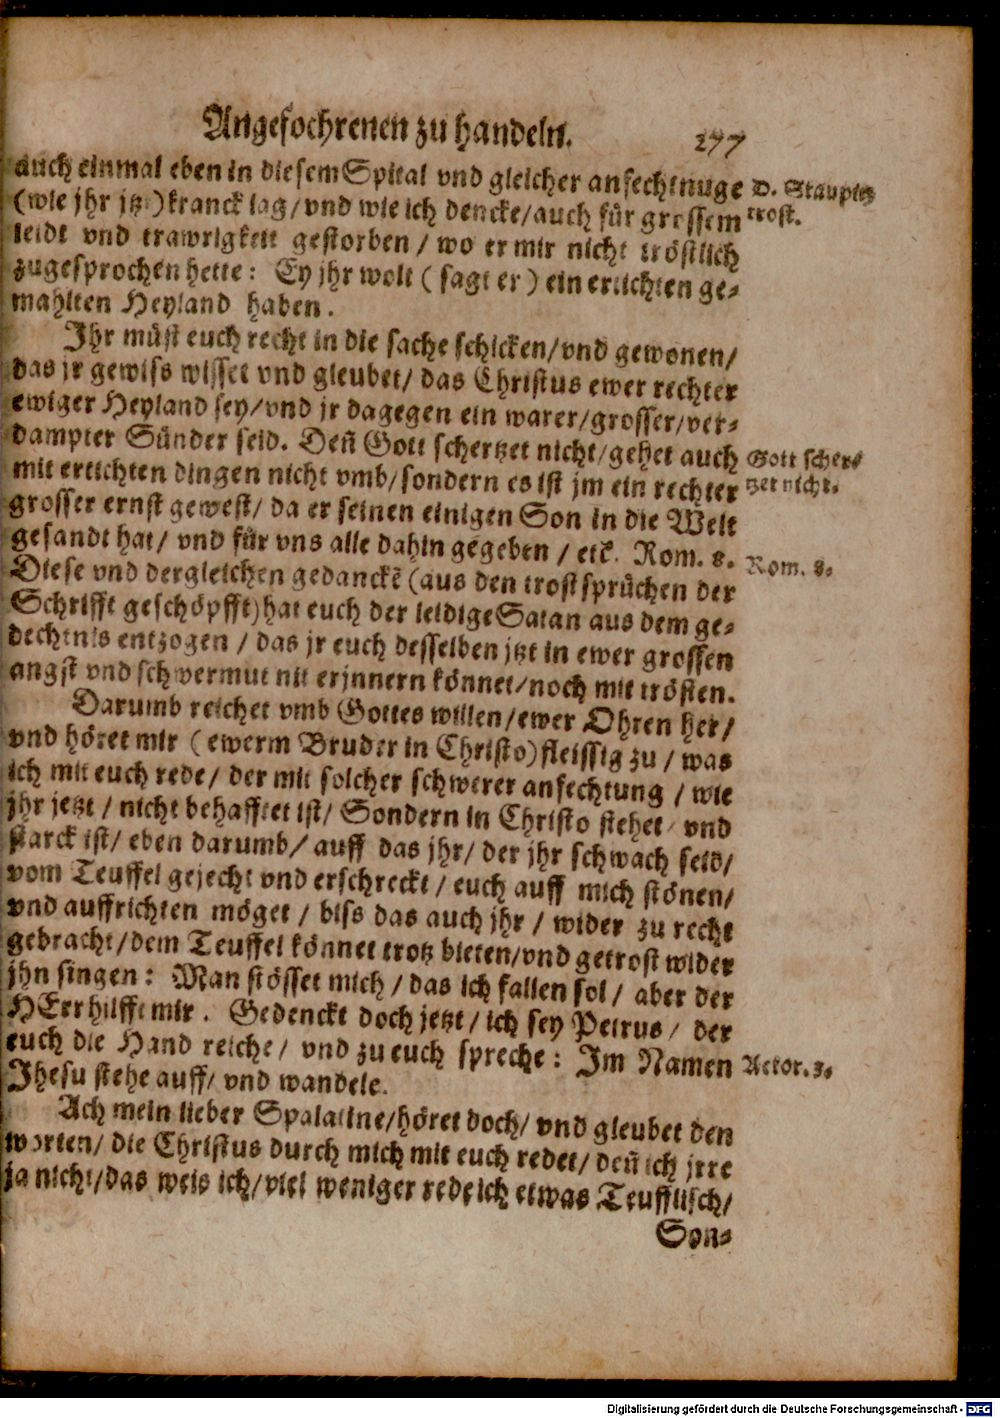 Angefochrenen zu handeln. 277
auch einmal eben in diesem Spital vnd gleicher anfechtnuge
D. Staupitz
(wie jhr jtzt) kranck lag / vnd wie ich dencke / auch für grossem
trost.
leidt vnd trawrigkeit gestorben / wo er mir nicht tröstlich
zugesprochen hette: Ey jhr wolt (sagt er) ein ertichten ge-
mahlten Heyland haben.
Ihr müst euch recht in die sache schicken / vnd gewonen /
das jr gewiss wisset vnd gleubet / das Christus ewer rechter
ewiger Heyland sey / vnd jr dagegen ein warer / grosser / ver-
dampter Sünder seid. Den̄ Gott schertzet nicht / gehet auch
Gott scher-
mit ertichten dingen nicht vmb / sondern es ist jm ein rechter
tzet nicht.
grosser ernst gewest / da er seinen einigen Son in die Welt
gesandt hat / vnd für vns alle dahin gegeben / etc. Rom. 8.
Rom. 8.
Diese vnd dergleichen gedanckē (aus den trostsprüchen der
Schrifft geschöpfft) hat euch der leidige Satan aus dem ge-
dechtnis entzogen / das jr euch desselben jtzt in ewer grossen
angst vnd schwermut nit erjnnern könnet / noch mit trösten.
Darumb reichet vmb Gottes willen / ewer Ohren her /
vnd höret mir (ewerm Bruder in Christo) fleissig zu / was
ich mit euch rede / der mit solcher schwerer anfechtung / wie
jhr jetzt / nicht behafftet ist / Sondern in Christo stehet / vnd
starck ist / eben darumb / auff das jhr / der jhr schwach seid /
vom Teuffel gejecht vnd erschreckt / euch auff mich stönen /
vnd auffrichten möget / biss das auch jhr / wider zu recht
gebracht / dem Teuffel könnet trotz bieten / vnd getrost wider
jhn singen: Man stösset mich / das ich fallen sol / aber der
HErr hilfft mir. Gedenckt doch jetzt / ich sey Petrus / der
euch die Hand reiche / vnd zu euch spreche: Im Namen
Actor. 3.
Jhesu stehe auff / vnd wandele.
Ach mein lieber Spalatine / höret doch / vnd gleubet den
worten / die Christus durch mich mit euch redet / den̄ ich jrre
ja nicht / das weis ich / viel weniger rede ich etwas Teufflisch /
Son-
Digitalisierung gefördert durch die Deutsche Forschungsgemeinschaft - DFG